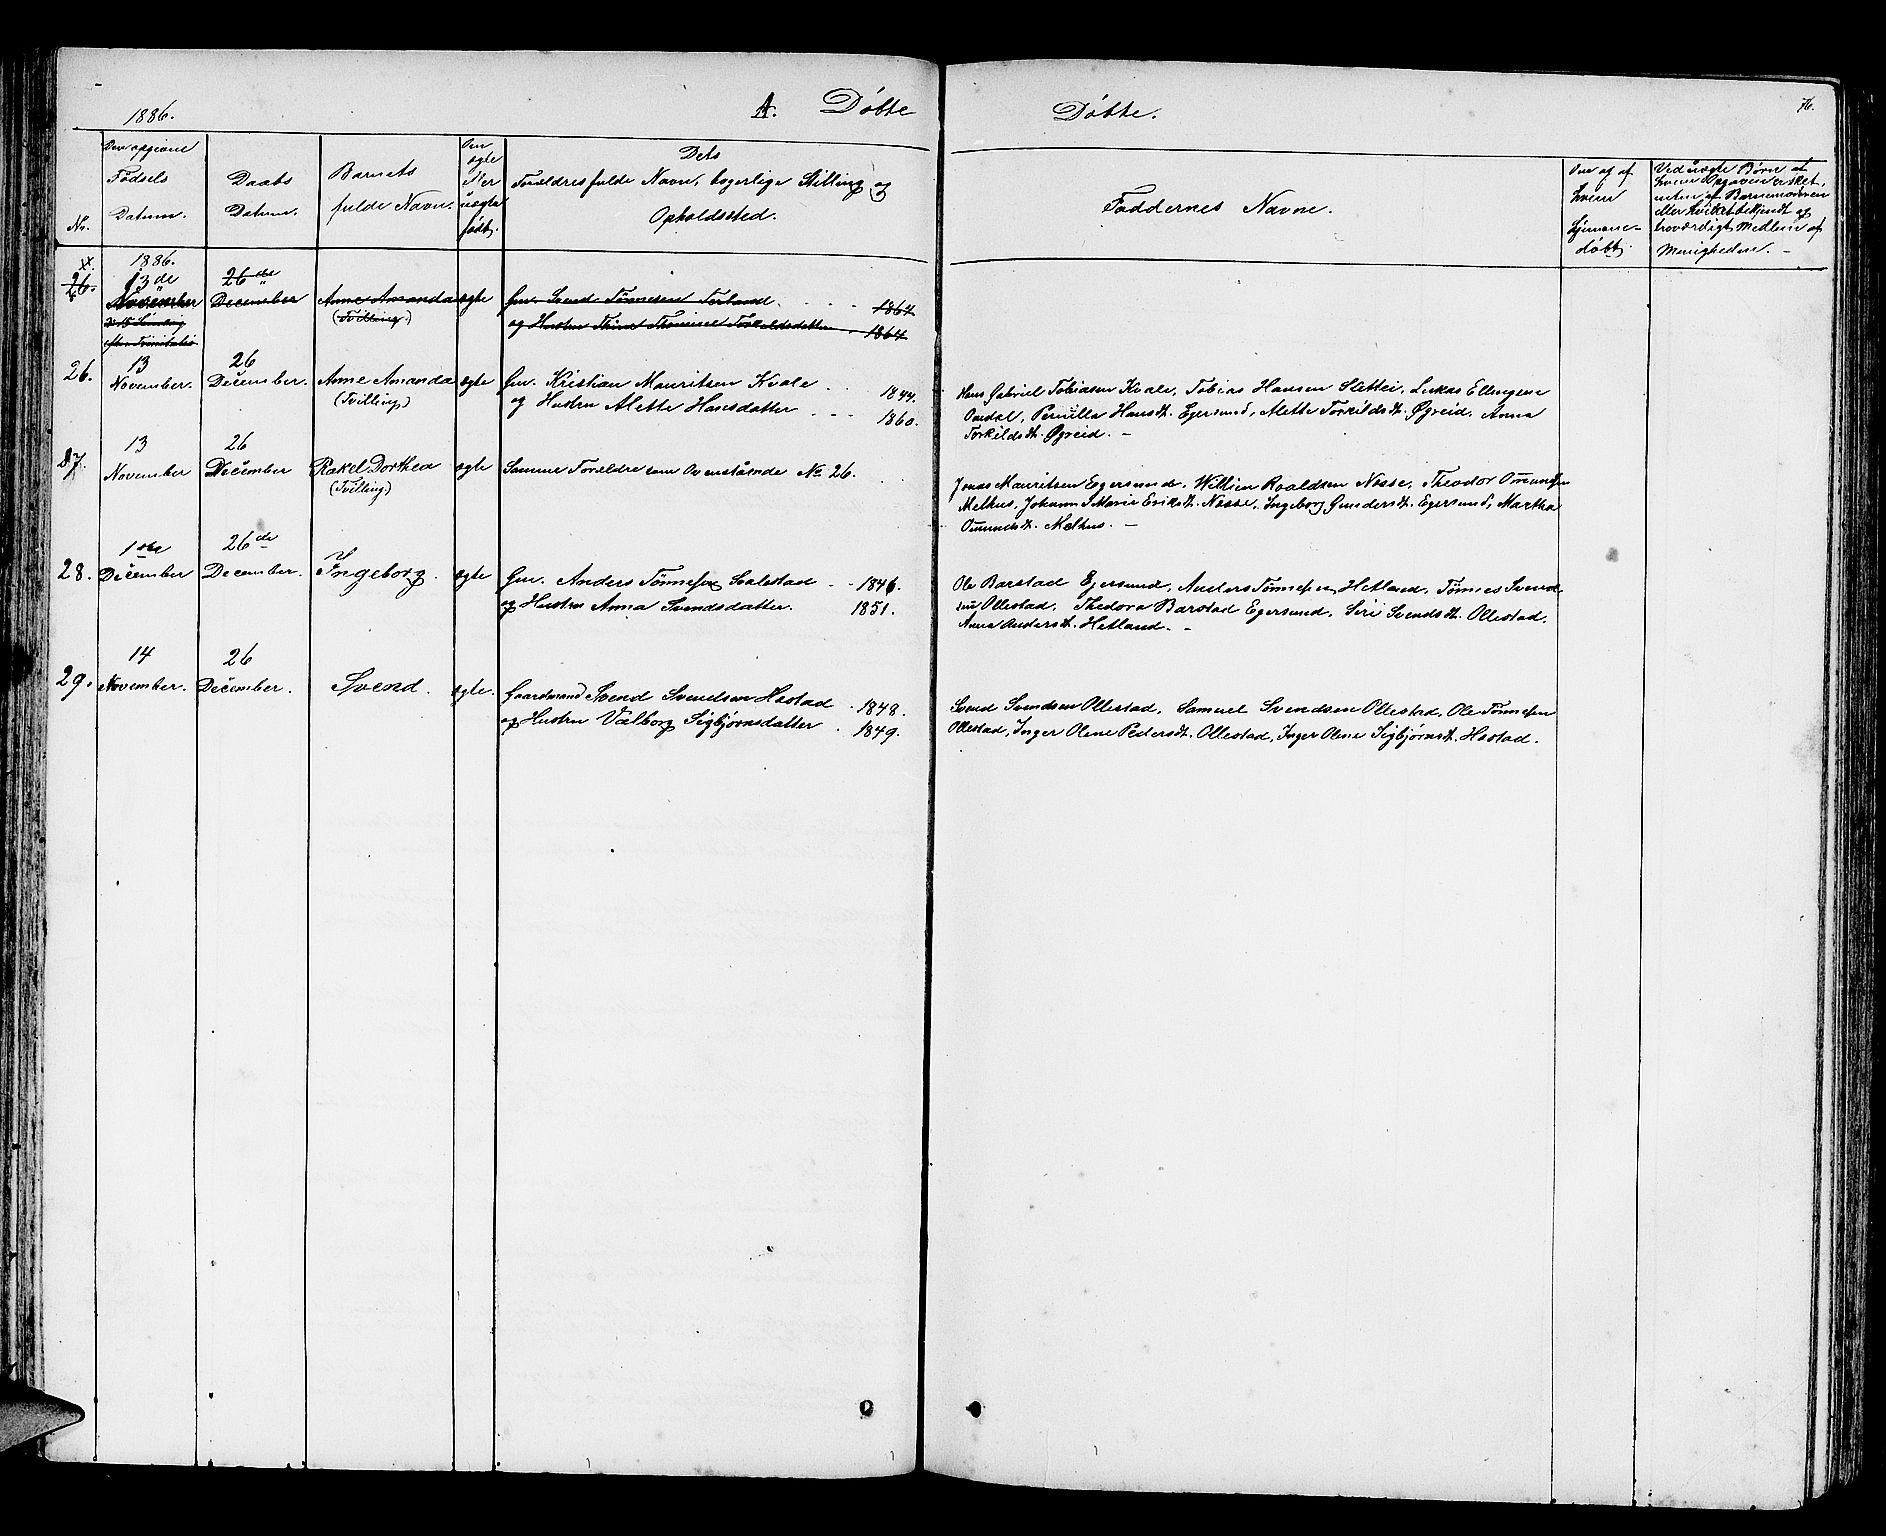 1886.
A. Döbte
Döbte.
76.
Nr.
Den opgivne
Fødsels
Datum.
Daabs
Datum.
Barnets
fulde Navn.
Om
ægte
eller
uægte
født.
Dets
Forældres fulde Navn, borgerlige Stilling og
Opholdssted.
Faddernes Navne.
Om og af
hvem
hjemme-
döbt.
Ved uægte Børn at
hvem Opgaven er sket,
enten af Barnemoderen
eller hvilket bekjendt og
troværdigt Medlem af
Menigheden. -
X.
1886.
26. 13de 26de
November December Anne Amanda ægte Gm. Svend Tönnesen 1864
(Tvilling) og Hustru 1864
efter Trinitatis
13 26
26. November. December. Anne Amanda ægte Gm. Kristian Mauritsen Kvale 1844.
(Tvilling) og Hustru Alette Hansdatter 1860.
Hans Gabriel Tobiasen Kvale, Tobias Hansen Slettei, Lukas Ellingsen
Omdal, Pernilla Hansdt. Egersund, Alette Torkildsdt. Øgreid, Anna
Torkildsdt. Øgreid. -
13 26
27. November December Rakel Dorthea ægte Samme Forældre som Ovenstående No 26.
(Tvilling)
Jonas Mauritsen Egersund, William Roaldsen Nosse, Theodor Omundsen
Melhus, Johanna Marie Eriksdt. Nosse, Ingeborg Gundersdt. Egersund, Martha
Omundsdt. Melhus. -
1ste 26de
28. December December. Ingeborg. ægte Gm. Anders Tönnesen Salestad 1846.
og Hustru Anna Svendsdatter. 1851.
Ole Barstad Egersund, Anders Tönnesen Hetland, Tönnes Svend-
sen Ollestad, Thedora Barstad Egersund, Siri Svendsdt. Ollestad.
Anna Andersdt. Hetland. -
14 26
29. November. December. Svend. ægte. Gaardmand Svend Svendsen Hæstad 1848.
og Hustru Valborg Sigbjørnsdatter 1849.
Svend Svendsen Ollestad, Samuel Svendsen Ollestad, Ole Tönnesen
Ollestad, Inger Olene Pedersdt. Ollestad, Inger Olene Sigbjörnsdt. Hæstad.